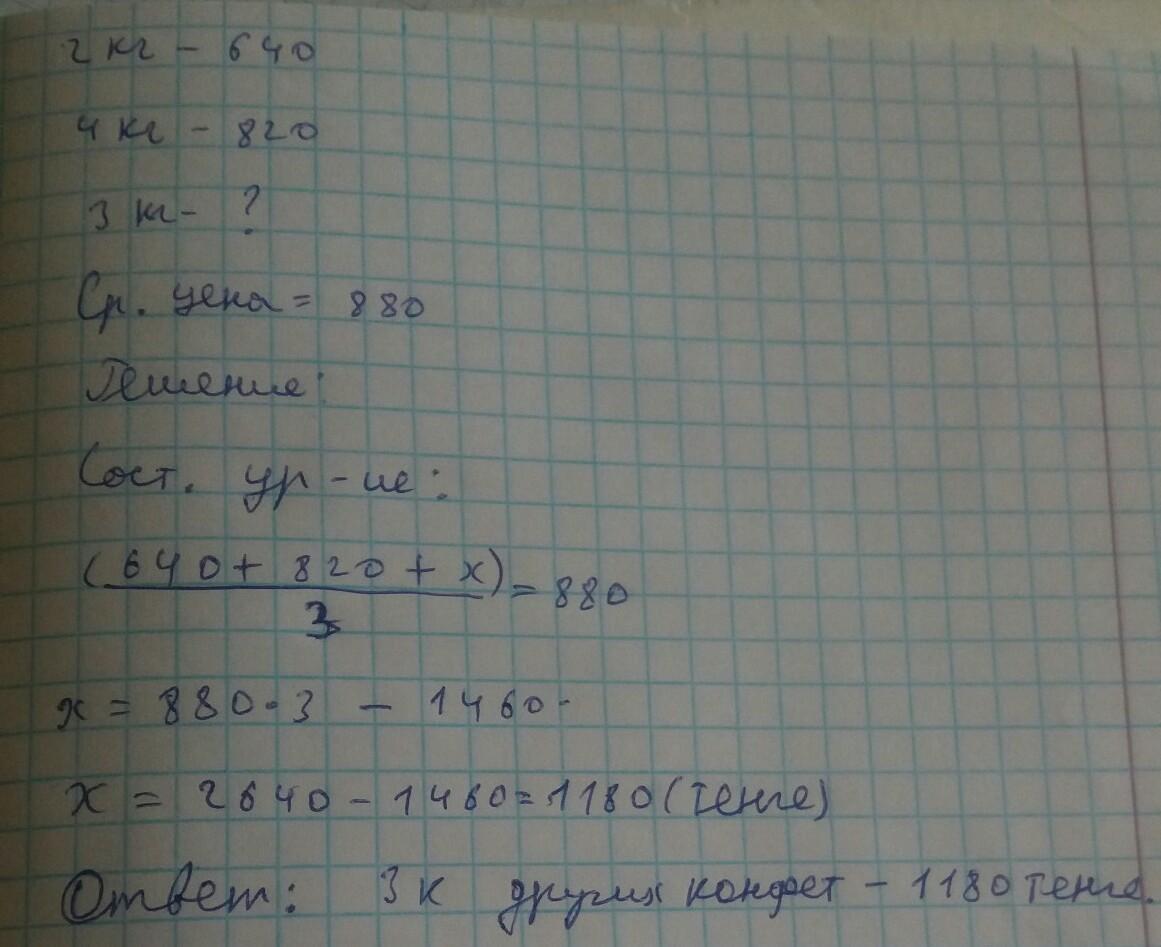 2 кг - 640
4 кг - 820
3 кг - ?
Ср. цена = 880
Решение:
Сост. ур-ие:
(640 + 820 + x) = 880
3
x = 880·3 - 1460
x = 2640 - 1460 = 1180 (тенге)
Ответ: 3 к других конфет - 1180 тенге.